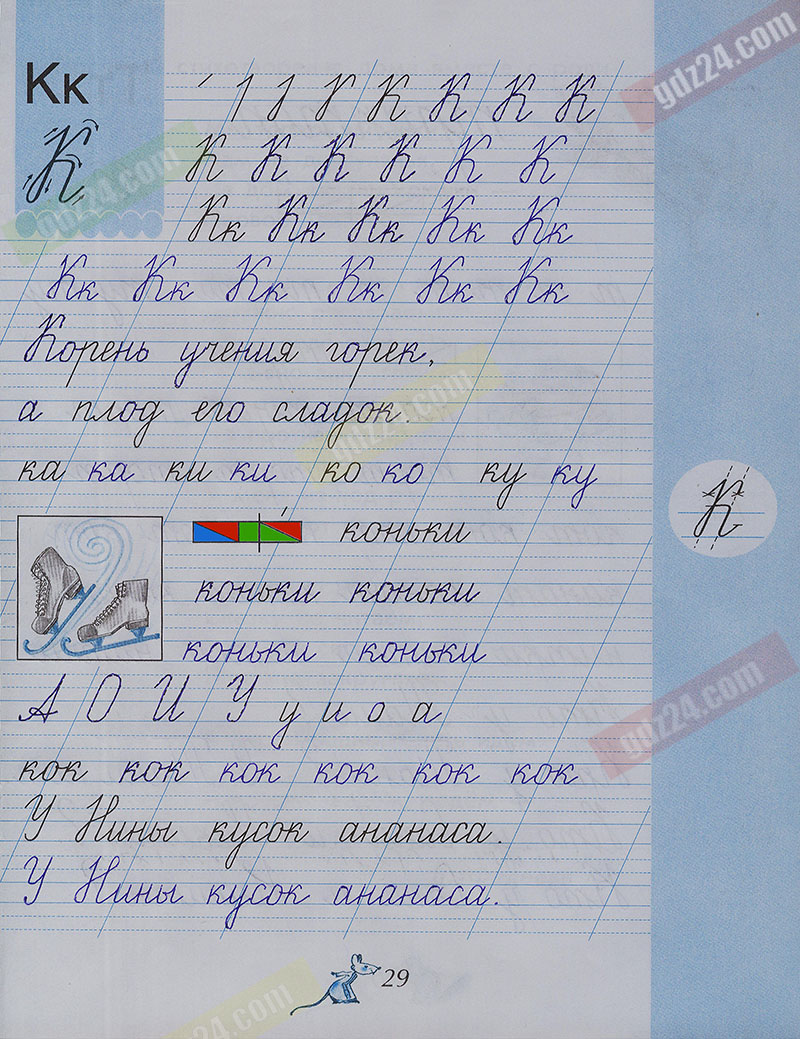 Кк
К
К К К К
К К К К К К
Кк Кк Кк Кк Кк
Кк Кк Кк Кк Кк Кк
Корень учения горек,
а плод его сладок.
ка ка ки ки ко ко ку ку
коньки
коньки коньки
коньки коньки
К
А О И У у и о а
кок кок кок кок кок кок
У Нины кусок ананаса.
У Нины кусок ананаса.
29
gdz24.com
gdz24.com
gdz24.com
gdz24.com
z24.com